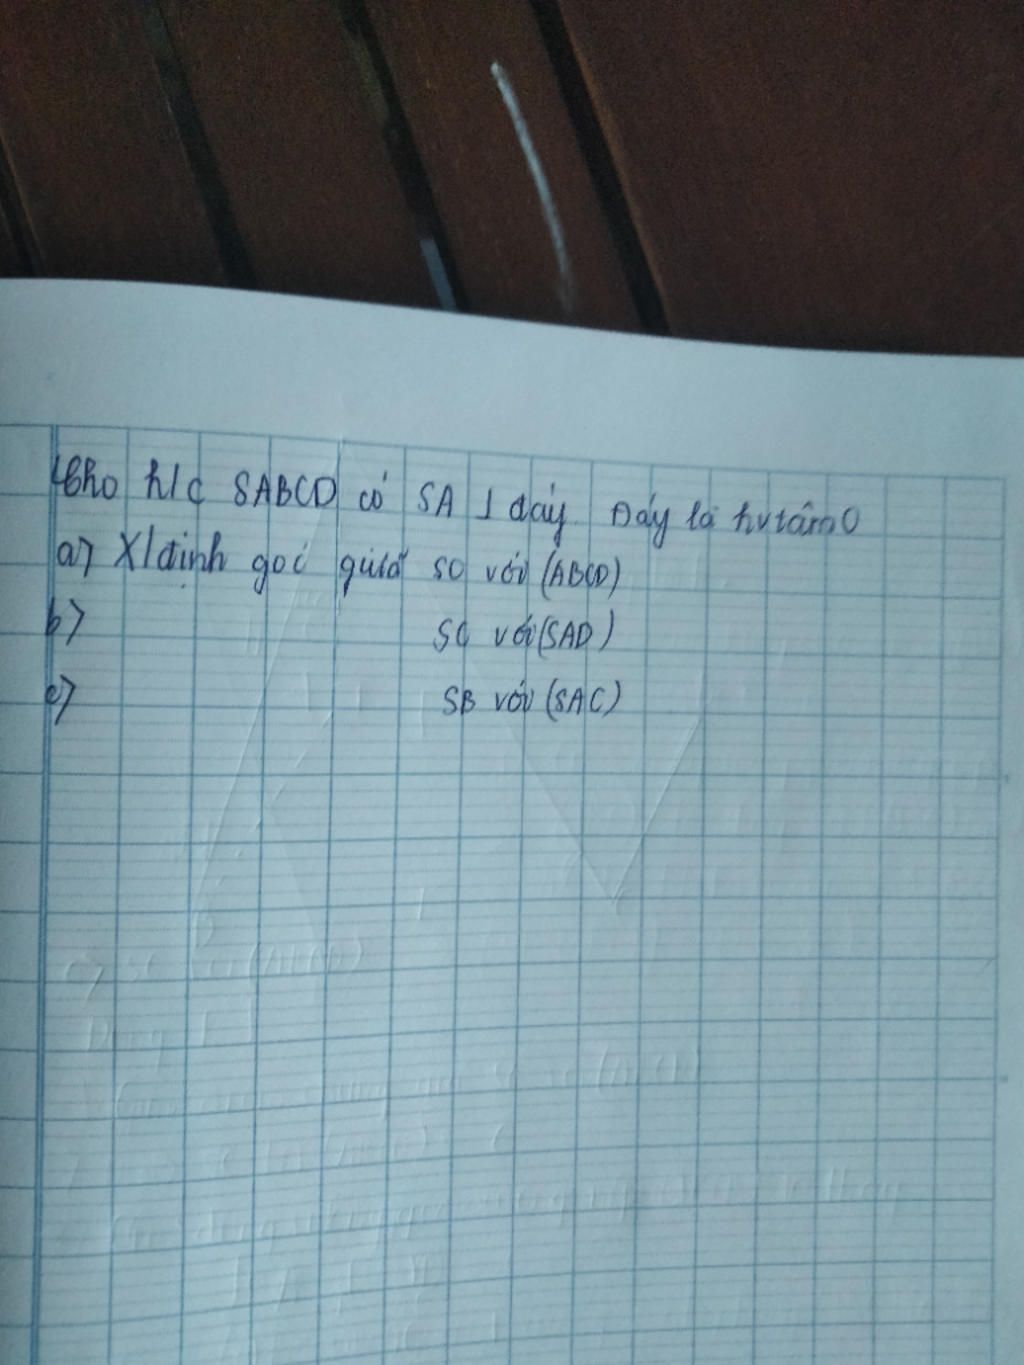 Cho h/c SABCD có SA ⊥ đáy. Đáy là hv tâm O
a) X/định goc giữa SO với (ABCD)
b) SC với (SAD)
c) SB với (SAC)